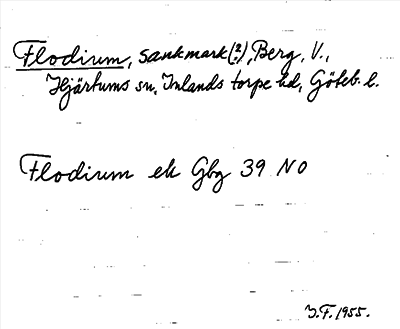 Flodium, sankmark(?), Berg, V.,
Hjärtums sn, Inlands torpe hd, Göteb. l.
Flodium ek Gbg 39 NO
I.F. 1955.